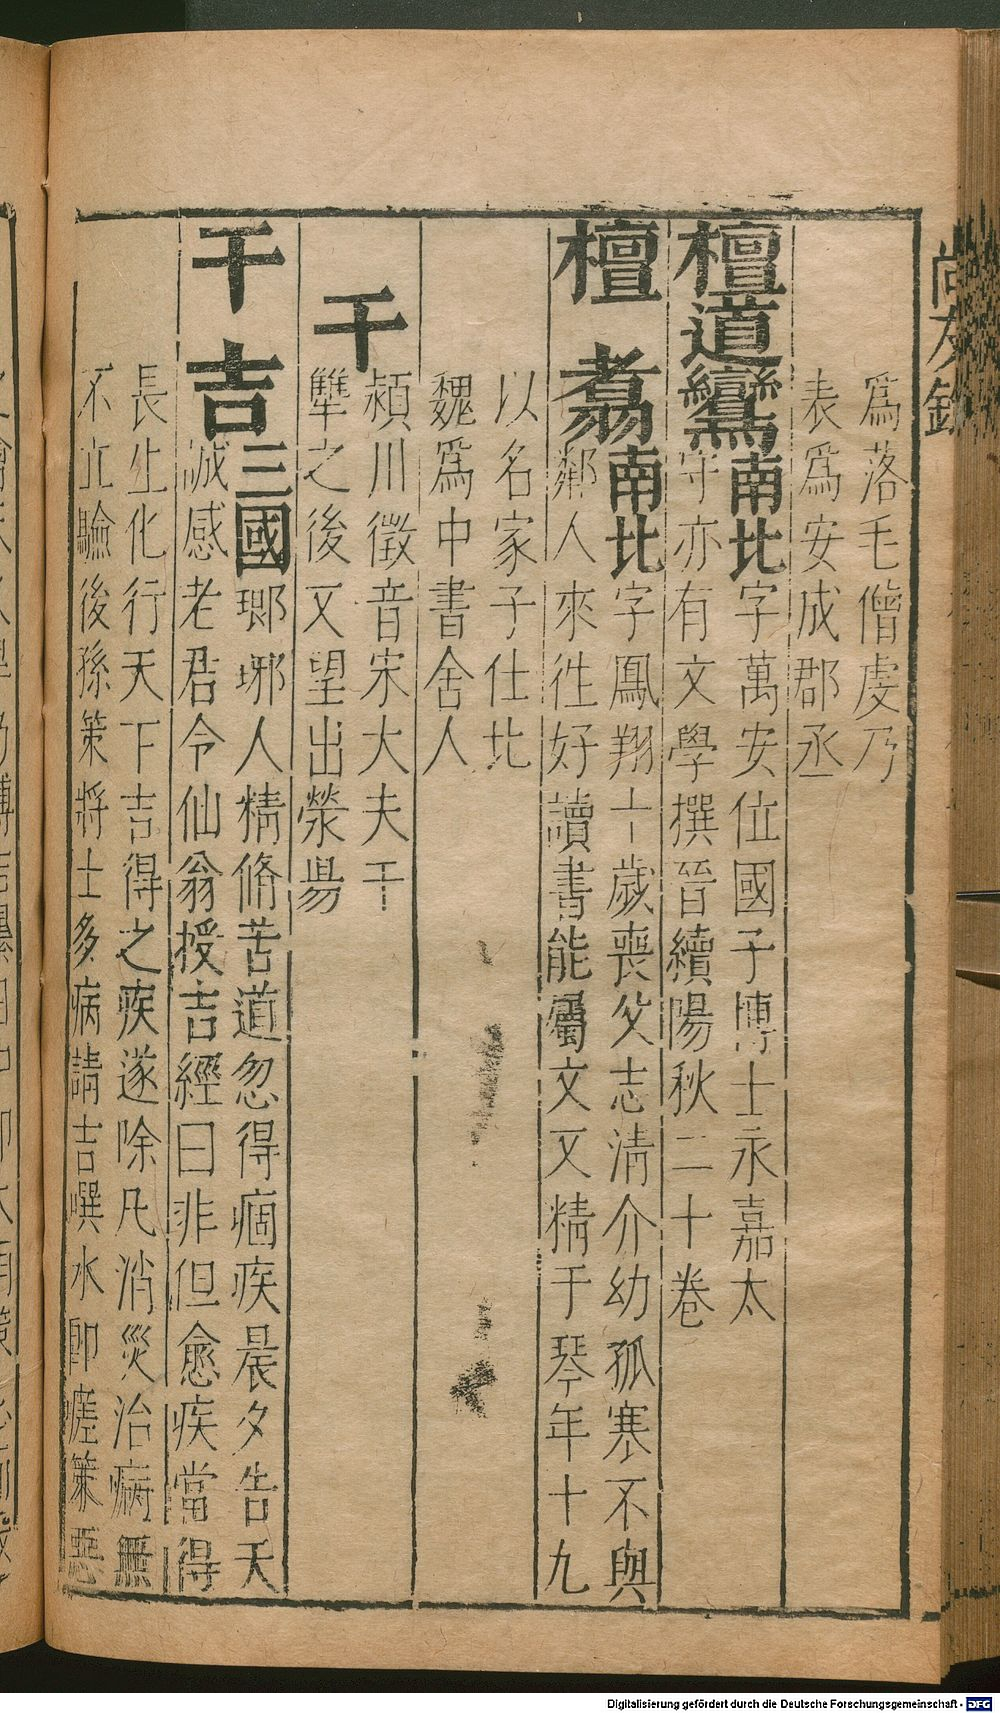 爲落毛僧虔乃
表爲安成郡丞
檀道鸞 南北 字萬安位國子博士永嘉太
守亦有文學撰晉續陽秋二十卷
檀翥 南北 字鳳翔十歲喪父志清介幼孤寒不與
鄰人來往好讀書能屬文又精于琴年十九
以名家子仕北
魏爲中書舍人
干
潁川徵音宋大夫干
犨之後又望出滎陽
干吉 三國 瑯琊人精脩苦道忽得痼疾晨夕告天
誠感老君令仙翁授吉經曰非但愈疾當得
長生化行天下吉得之疾遂除凡消災治病無
不立驗後孫策將士多病請吉噀水即瘥策惡
尚友錄
Digitalisierung gefördert durch die Deutsche Forschungsgemeinschaft - DFG